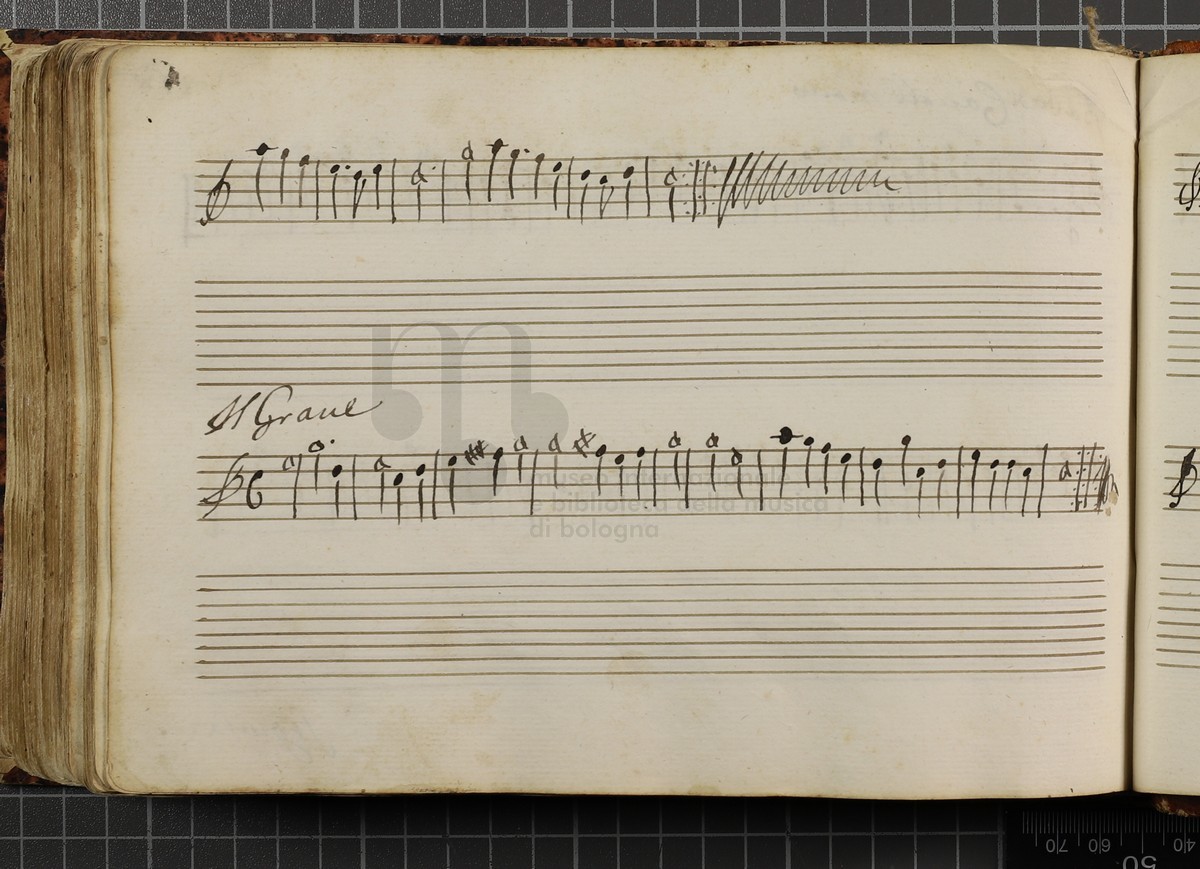 Il Graue
museo internazionale
e biblioteca della musica
di bologna
70
60
50
40